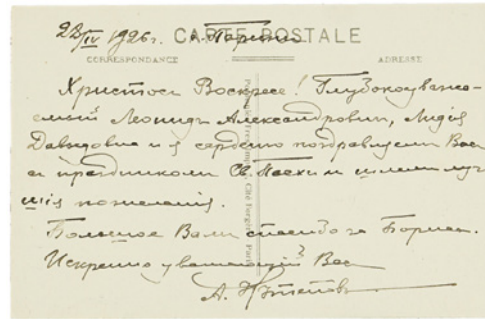 22/IV 1926 г. Париж
CARTE POSTALE
CORRESPONDANCE ADRESSE
Христосъ Воскресе! Глубокоуважа-
емый Леонидъ Александровичъ, Лидія
Давыдовна и я сердечно поздравляемъ Васъ
съ праздникомъ Св. Пасхи и шлемъ луч
шія пожеланія.
Большое Вамъ спасибо за
Искренно уважающій Васъ
А.